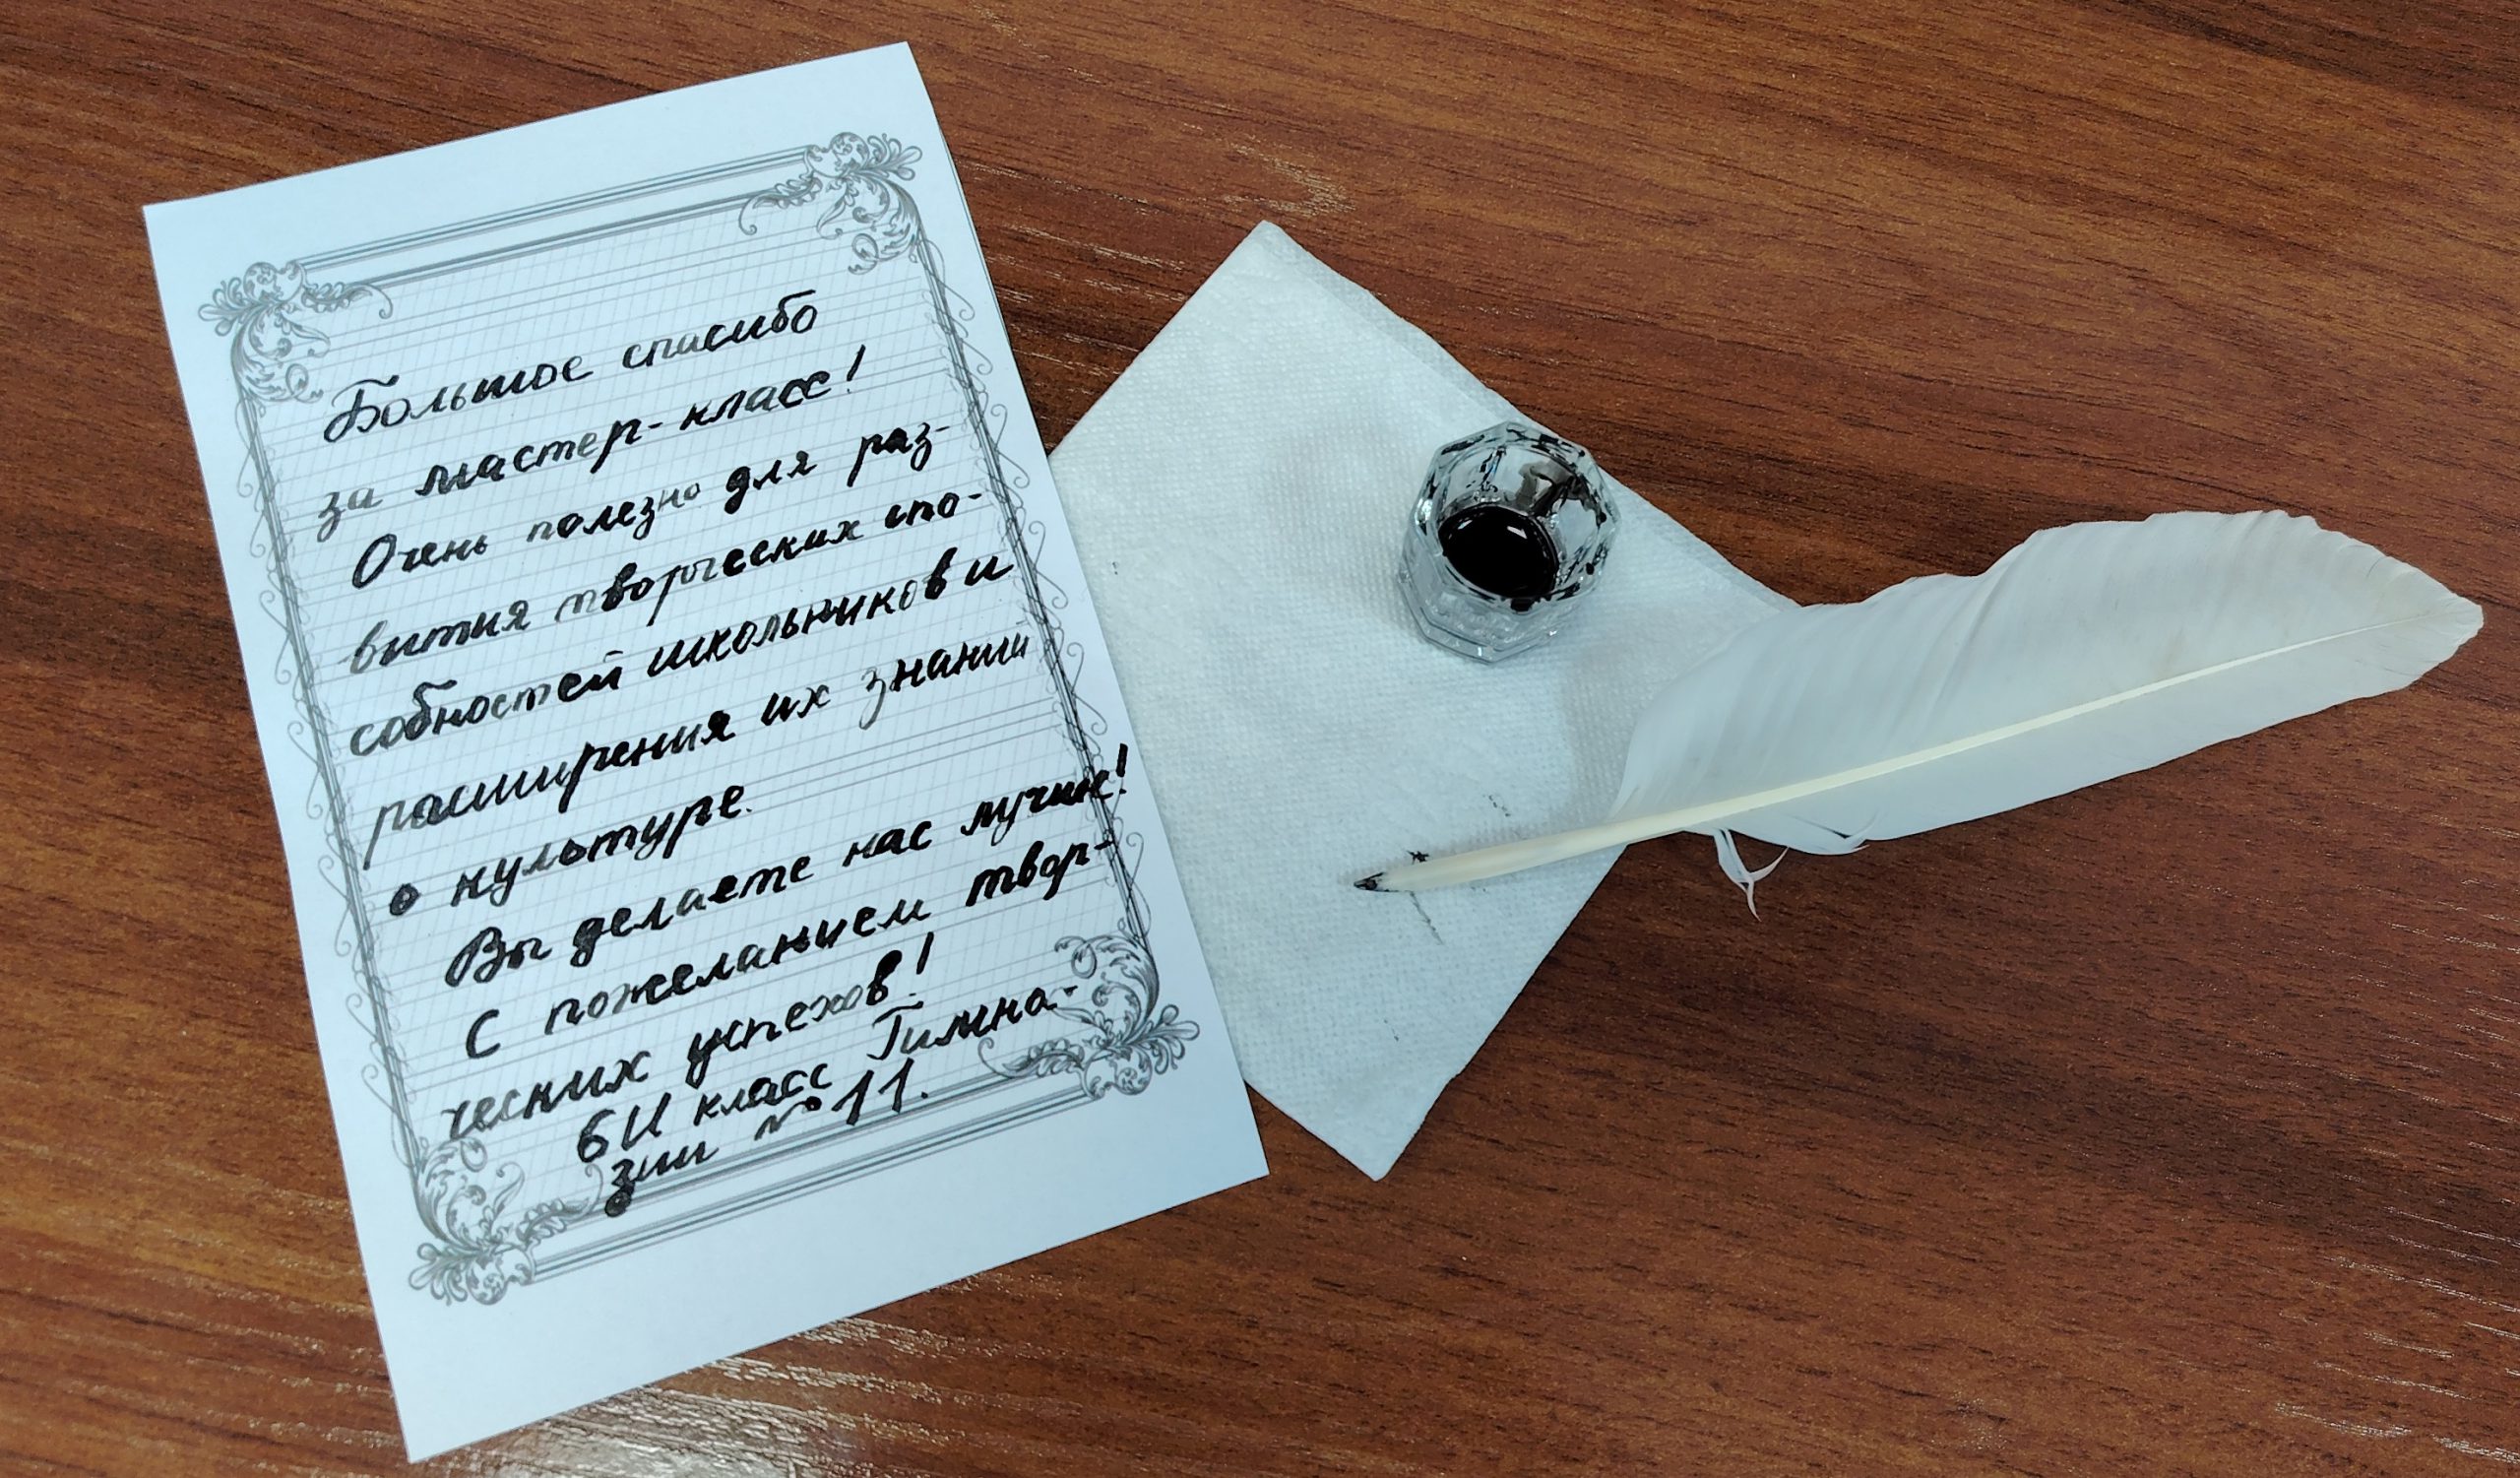 Большое спасибо
за мастер-класс!
Очень полезно для раз-
вития творческих спо-
собностей школьников и
расширения их знаний
о культуре.
Вы делаете нас лучше!
С пожеланием твор-
ческих успехов!
6И класс Гимна-
зии №11.